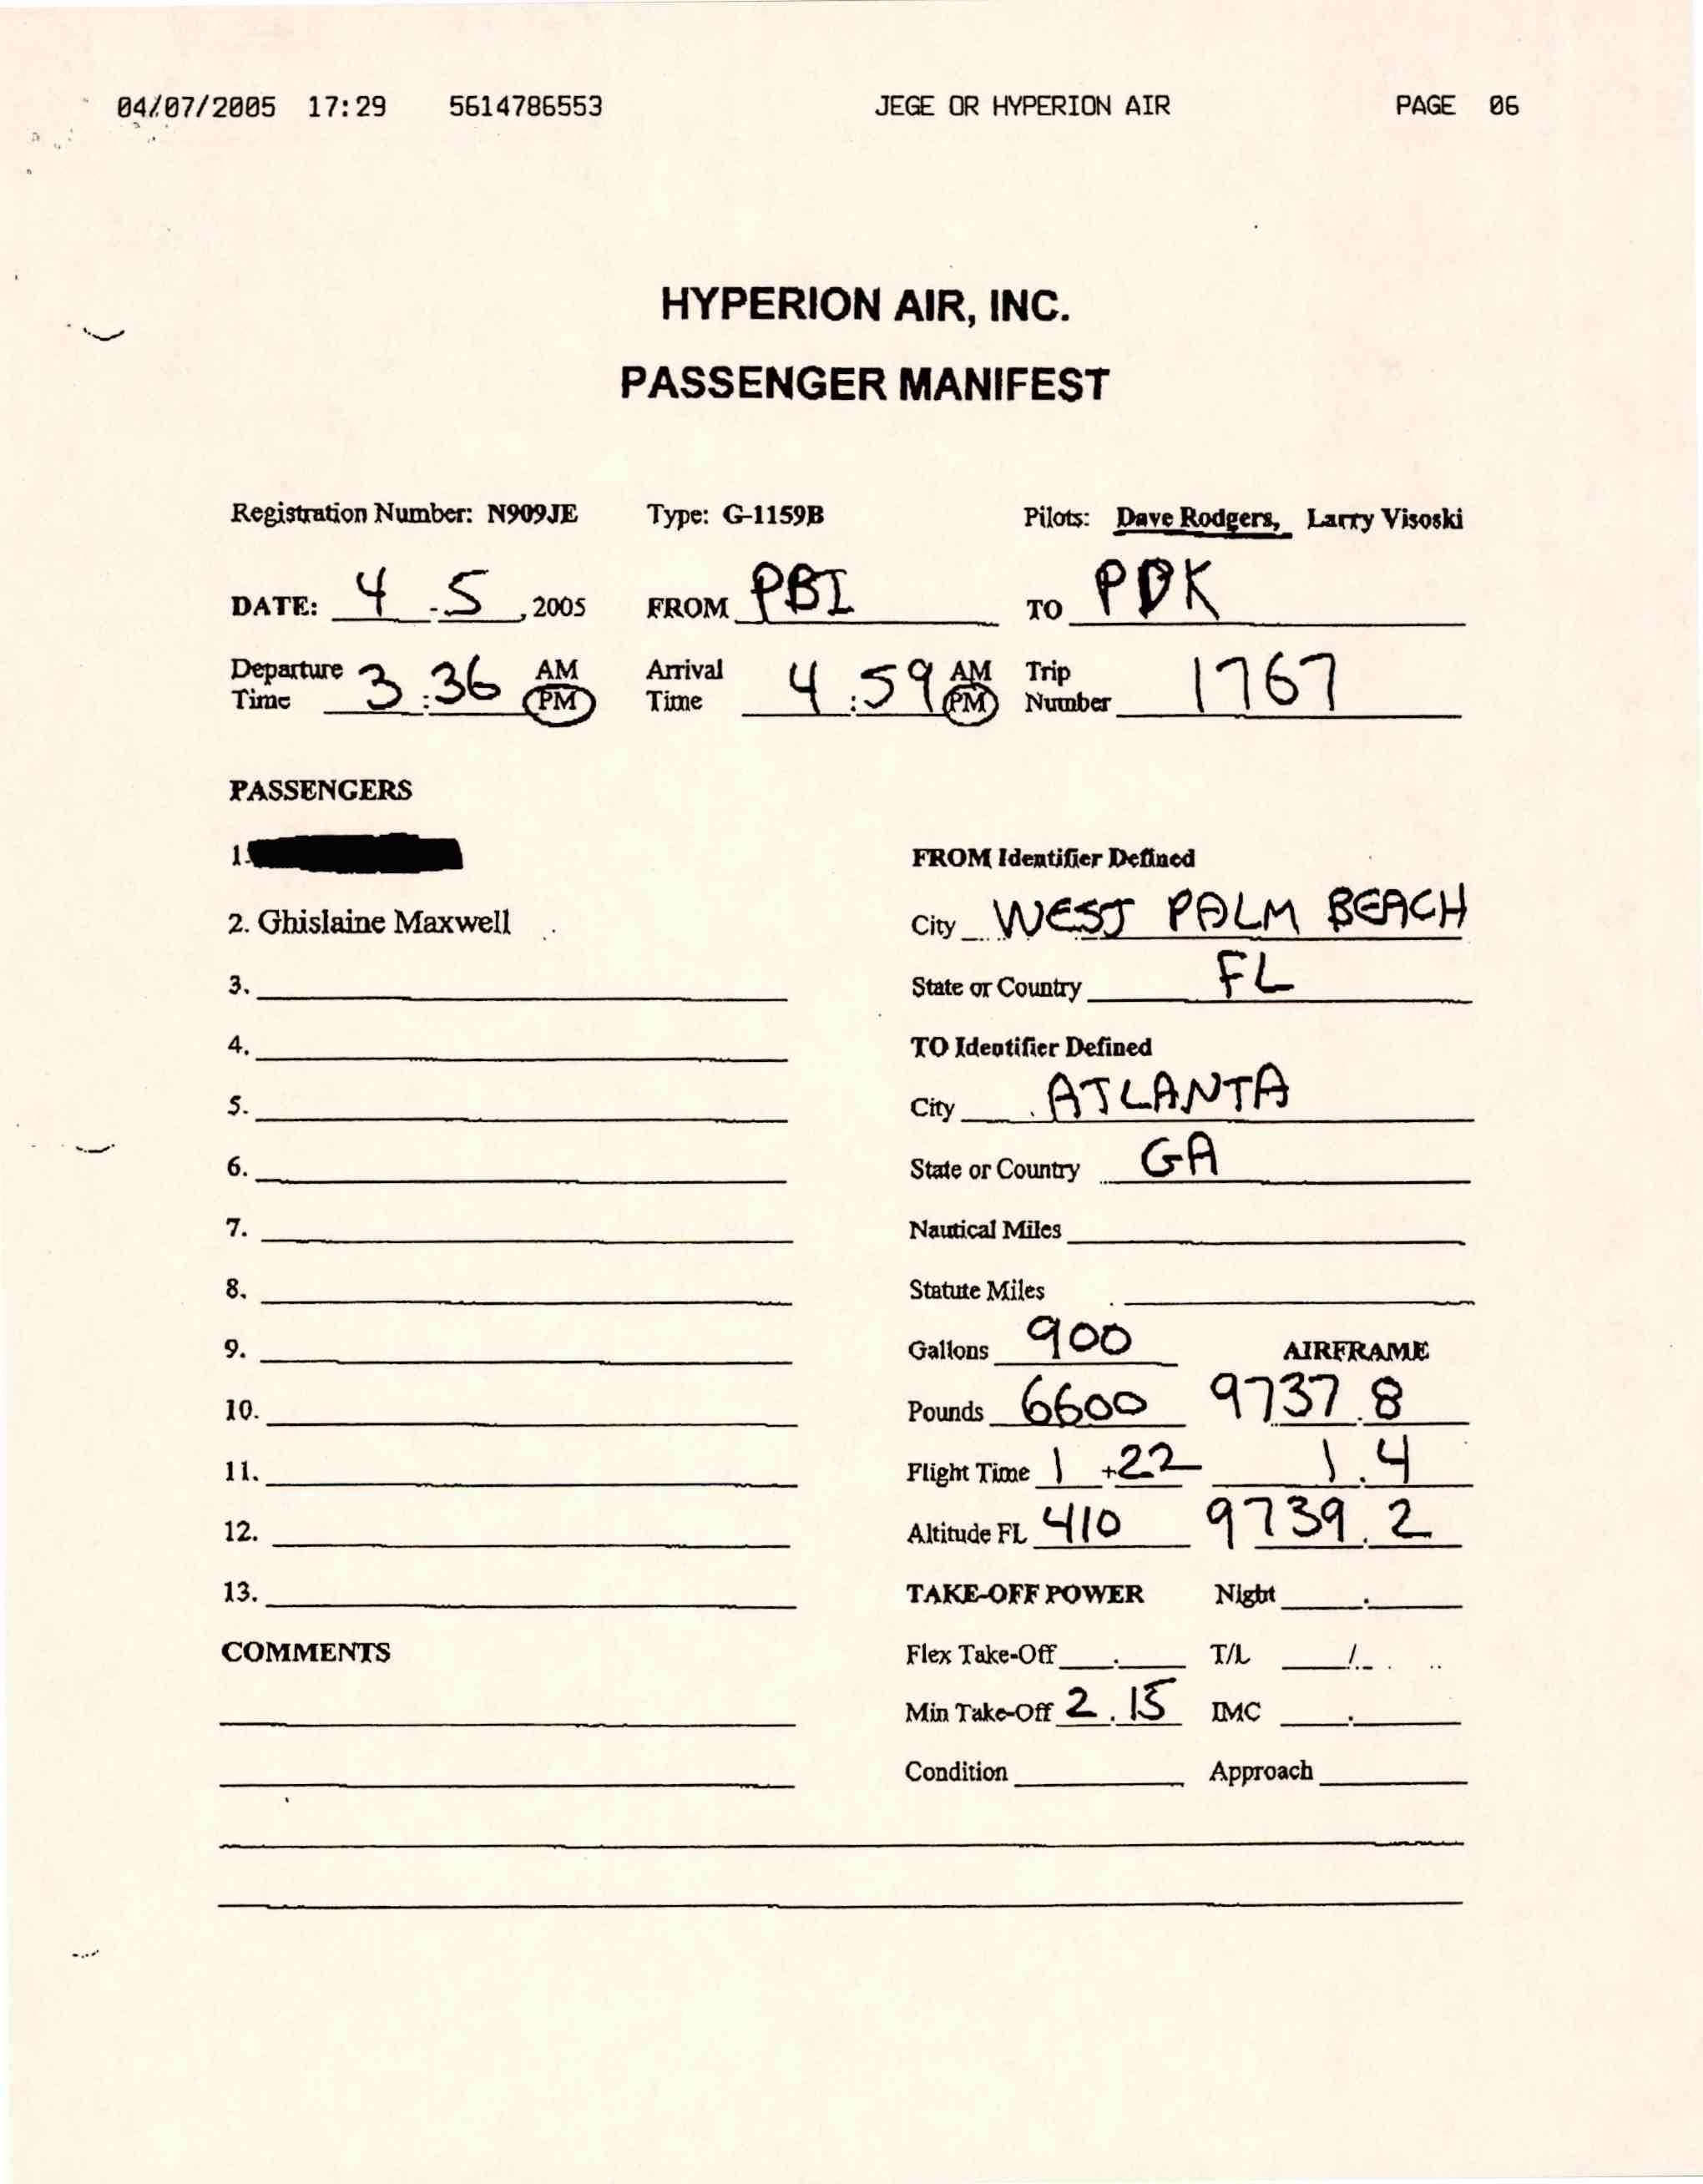 04/07/2005 17:29 5614786553 JEGE OR HYPERION AIR PAGE 06
HYPERION AIR, INC.
PASSENGER MANIFEST
Registration Number: N909JE Type: G-1159B Pilots: Dave Rodgers, Larry Visoski
DATE: 4 - 5, 2005 FROM PBI TO PDK
Departure Time 3:36 AM PM Arrival Time 4:59 AM PM Trip Number 1767
PASSENGERS
1.
FROM Identifier Defined
2. Ghislaine Maxwell City WEST PALM BEACH
3. State or Country FL
4. TO Identifier Defined
5. City ATLANTA
6. State or Country GA
7. Nautical Miles
8. Statute Miles
9. Gallons 900 AIRFRAME
10. Pounds 6600 9737.8
11. Flight Time 1 +22 1.4
12. Altitude FL 410 9739.2
13. TAKE-OFF POWER Night .
COMMENTS Flex Take-Off . T/L /
Min Take-Off 2.15 IMC .
Condition Approach